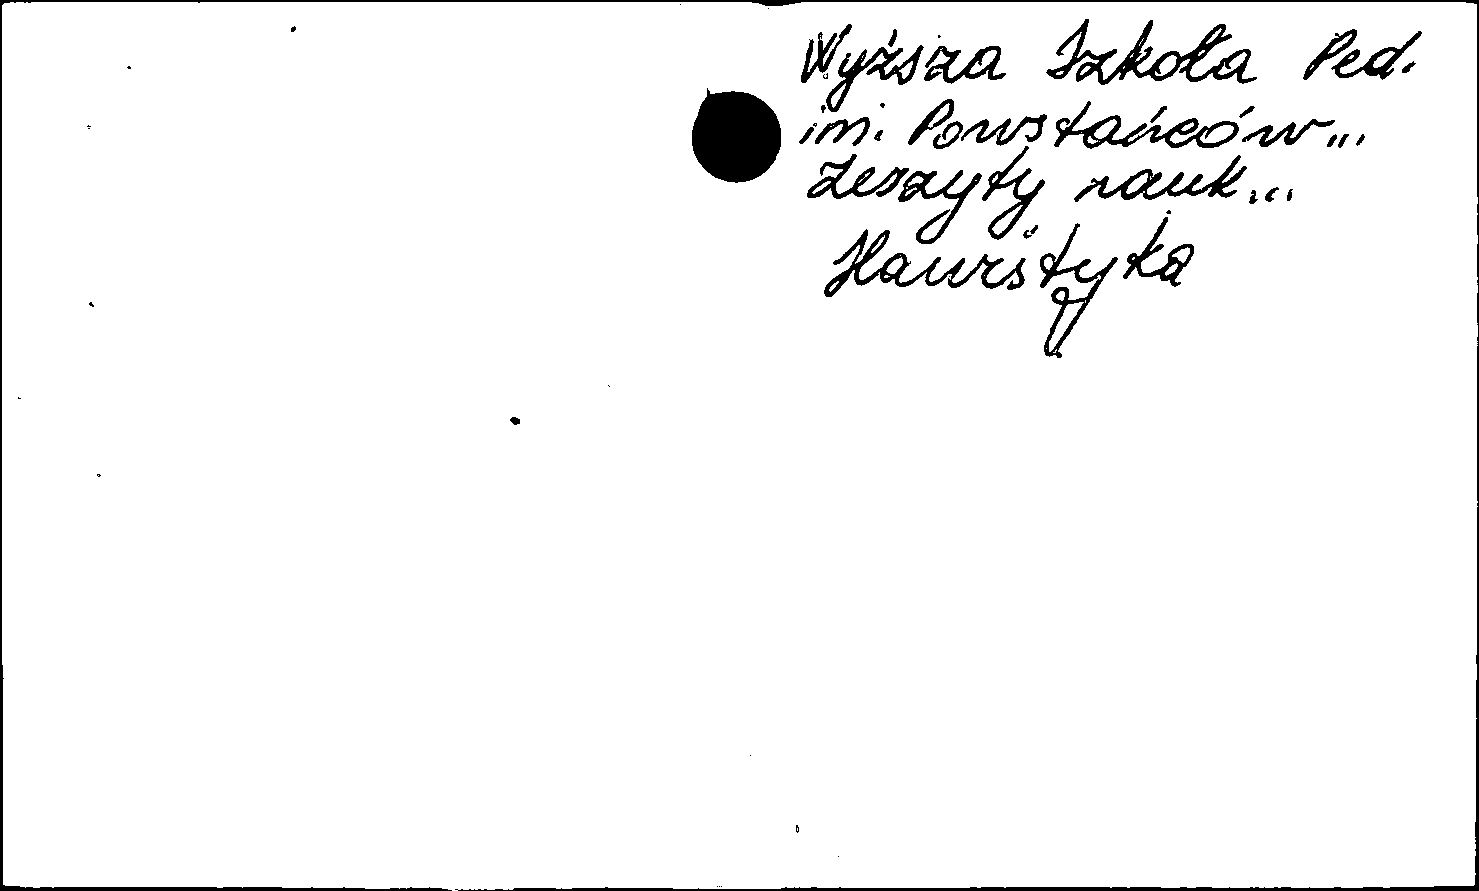 Wyższa Szkoła Ped.
im. Powstańców...
Zeszyty nauk...
Hauristyka